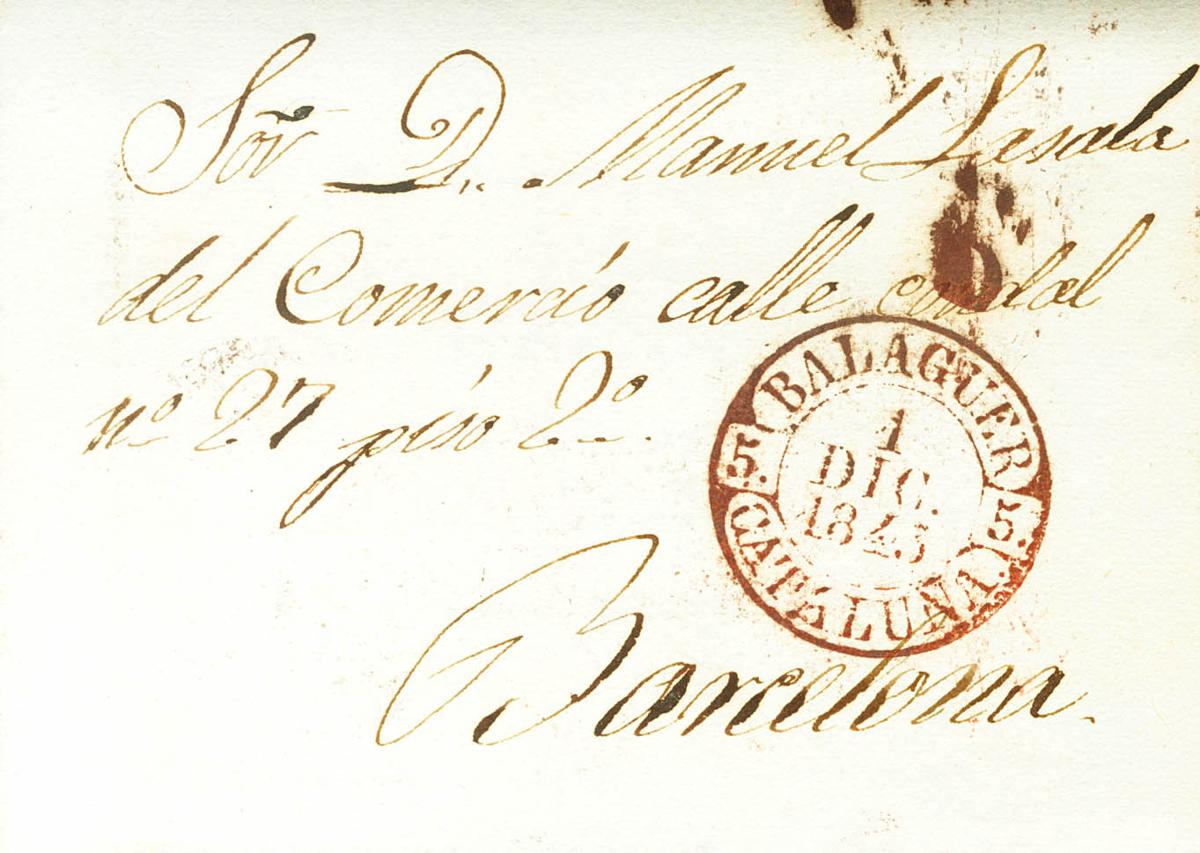 Sor. D. Manuel Lasala
del Comercio calle condal
nº 27 piso 2º.
BALAGUER
5 5
1
DIC.
1845
CATALUÑA.
Barcelona.